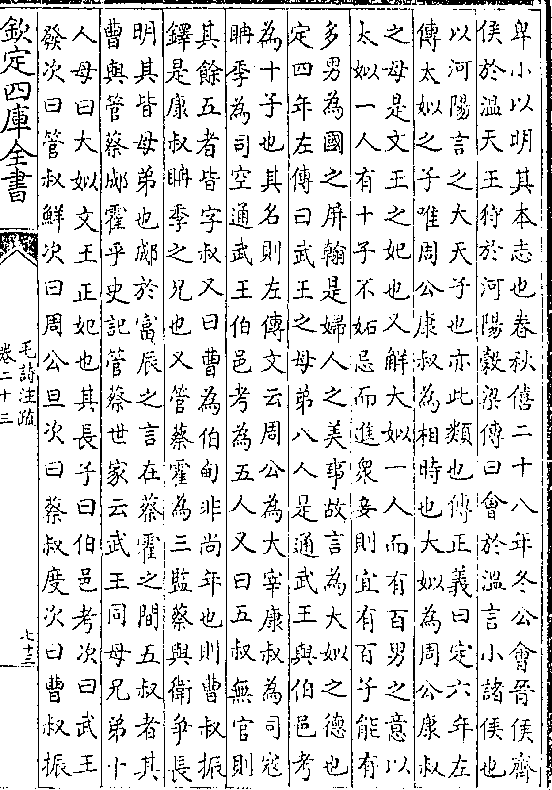 卑小以明其本志也春秋僖二十八年冬公會晉侯齊
侯於溫天王狩於河陽榖梁傳曰會於溫言小諸侯也
以河陽言之大天子也亦此類也傳正義曰定六年左
傳太姒之子唯周公康叔為相時也大姒為周公康叔
之母是文王之妃也又解大姒一人而有百男之意以
太姒一人有十子不妬忌而進衆妾則宜有百子能有
多男為國之屏翰是婦人之美事故言為大姒之德也
定四年左傳曰武王之母弟八人是通武王與伯邑考
為十子也其名則左傳文云周公為大宰康叔為司寇
聃季為司空通武王伯邑考為五人又曰五叔無官則
其餘五者皆字叔又曰曹為伯甸非尚年也則曹叔振
鐸是康叔聃季之兄也又管蔡霍為三監蔡與衛争長
明其皆母弟也郕於富辰之言在蔡霍之間五叔者其
曹與管蔡郕霍乎史記管蔡世家云武王同母兄弟十
人母曰大姒文王正妃也其長子曰伯邑考次曰武王
發次曰管叔鮮次曰周公旦次曰蔡叔度次曰曹叔振
欽定四庫全書
毛詩注疏
卷二十三
七十三